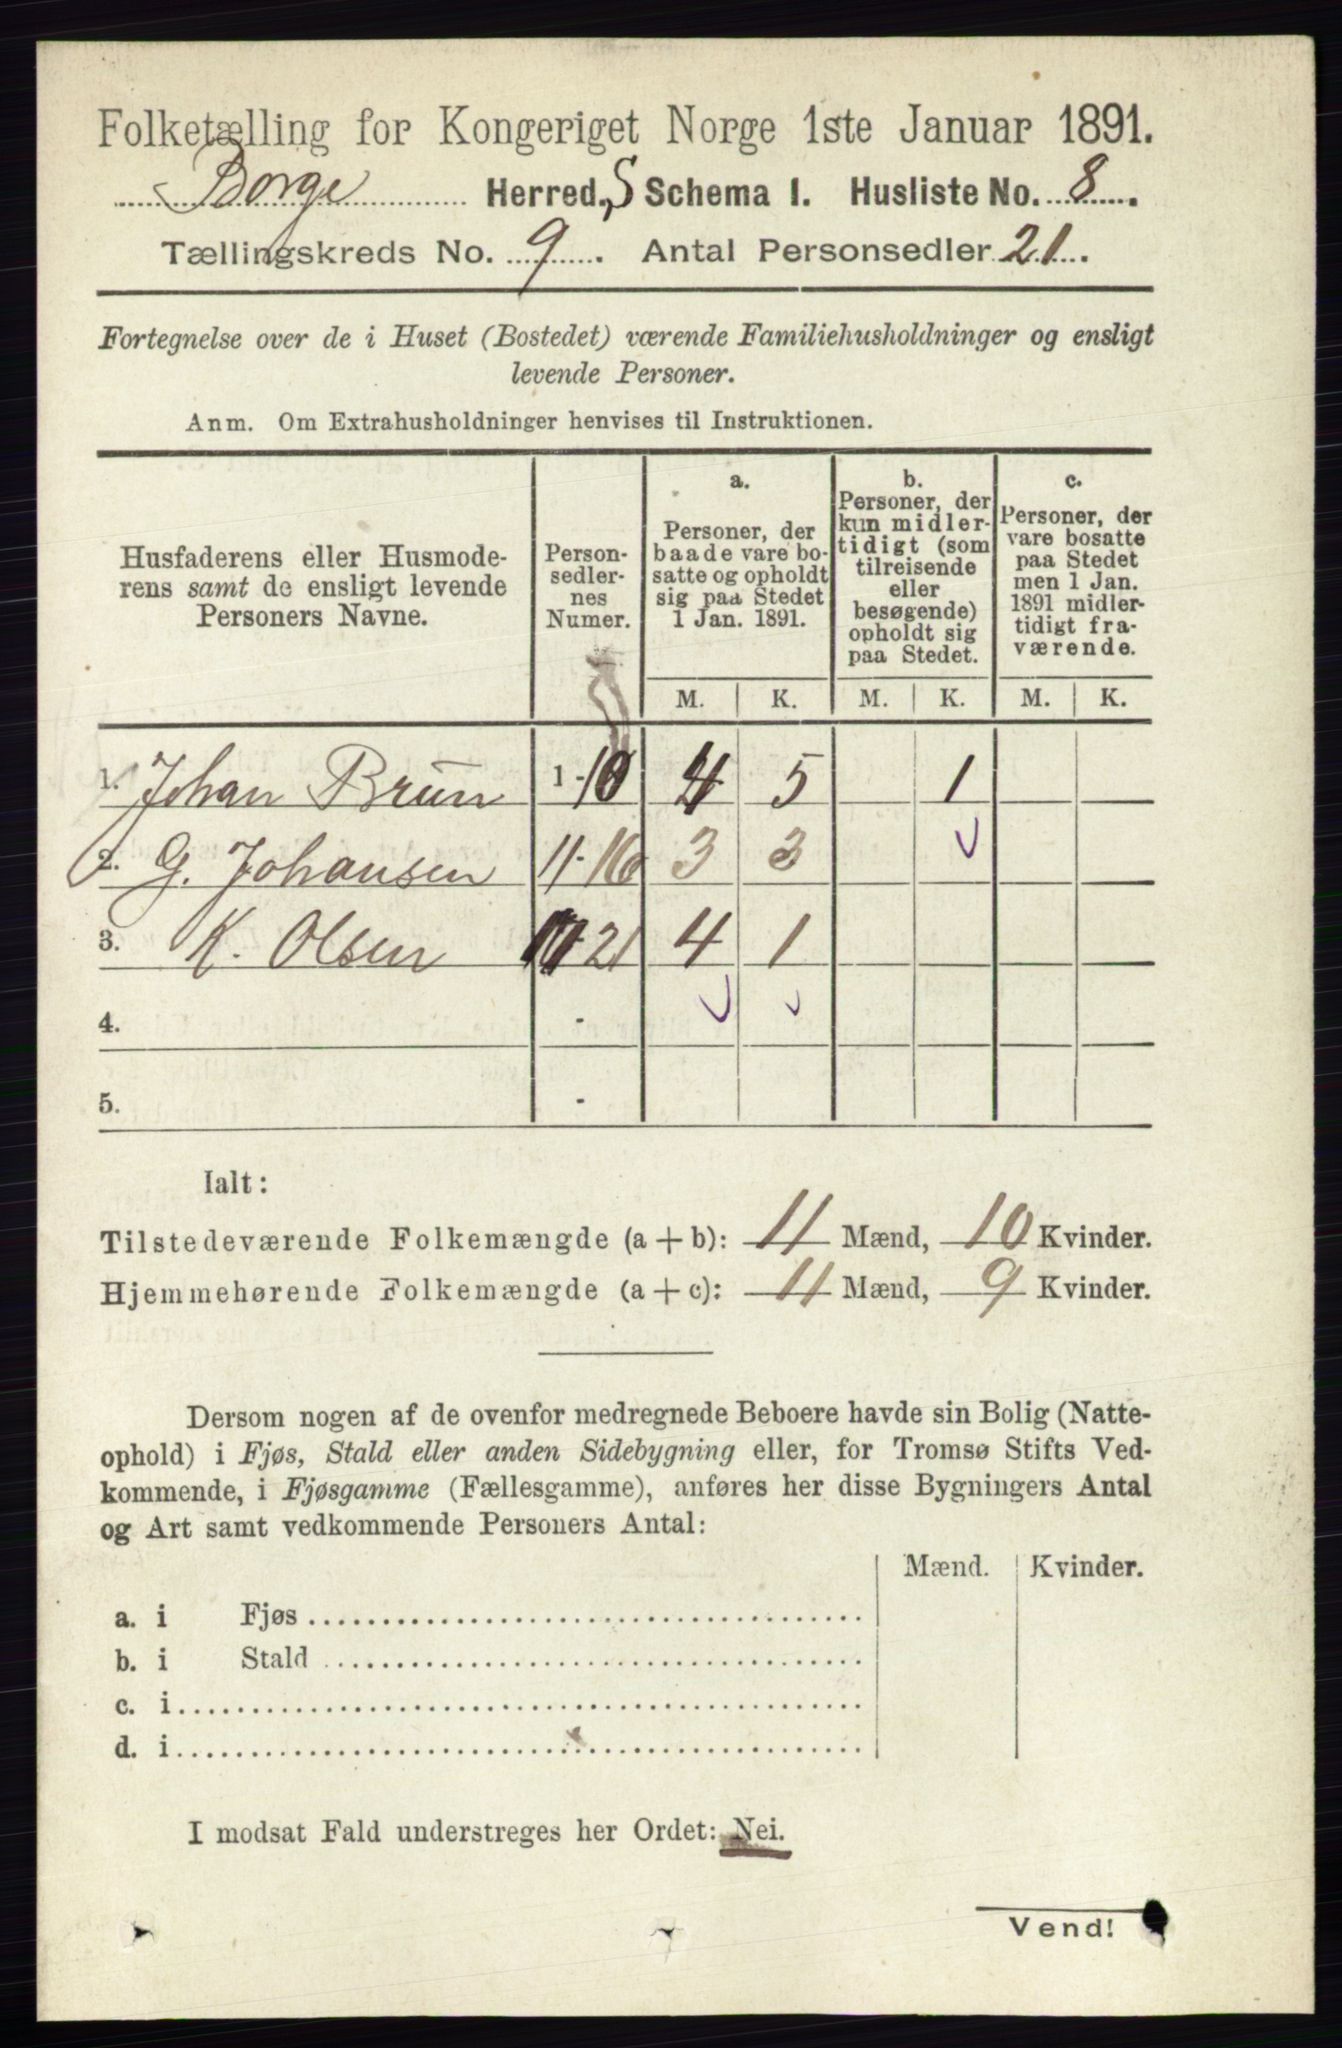 Folketælling for Kongeriget Norge 1ste Januar 1891.
Borge Herred, S Schema I. Husliste No. 8.
Tællingskreds No. 9. Antal Personsedler 21.
Fortegnelse over de i Huset (Bostedet) værende Familiehusholdninger og ensligt
levende Personer.
Anm. Om Extrahusholdninger henvises til Instruktionen.
Husfaderens eller Husmode-
rens samt de ensligt levende
Personers Navne.
Person-
sedler-
nes
Numer.
a.
Personer, der
baade vare bo-
satte og opholdt
sig paa Stedet
1 Jan. 1891.
b.
Personer, der
kun midler-
tidigt (som
tilreisende
eller
besøgende)
opholdt sig
paa Stedet.
c.
Personer, der
vare bosatte
paa Stedet
men 1 Jan.
1891 midler-
tidigt fra-
værende.
M. K. M. K. M. K.
1. Johan Brun 1-10 4 5 1
2. G. Johansen 11-16 3 3
3. K. Olsen 21 4 1
4. -
5. -
Ialt:
Tilstedeværende Folkemængde (a + b): 11 Mænd, 10 Kvinder.
Hjemmehørende Folkemængde (a + c): 11 Mænd, 9 Kvinder.
Dersom nogen af de ovenfor medregnede Beboere havde sin Bolig (Natte-
ophold) i Fjøs, Stald eller anden Sidebygning eller, for Tromsø Stifts Ved-
kommende, i Fjøsgamme (Fællesgamme), anføres her disse Bygningers Antal
og Art samt vedkommende Personers Antal:
Mænd. Kvinder.
a. i Fjøs
b. i Stald
c. i
d. i
I modsat Fald understreges her Ordet: Nei.
Vend!